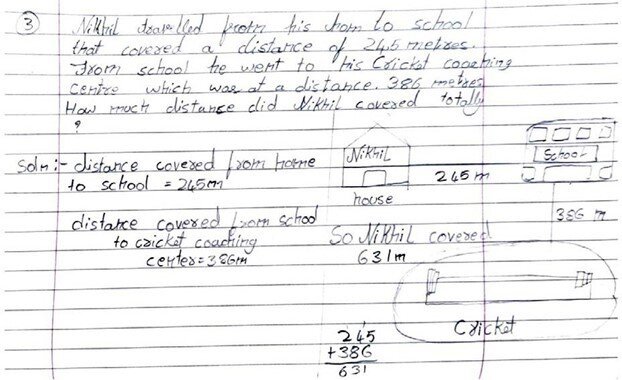 ③ Nikhil travelled from his hom to school
that covered a distance of 245 metres.
From school he went to his Cricket coaching
centre which was at a distance. 386 metres
How much distance did Nikhil covered totally
?
Soln :- distance covered from home
to school = 245m
distance covered from school
to cricket coaching
center = 386m
Nikhil
house
245 m
School
386 m
So Nikhil covered
631m
Cricket
1
245
+386
631